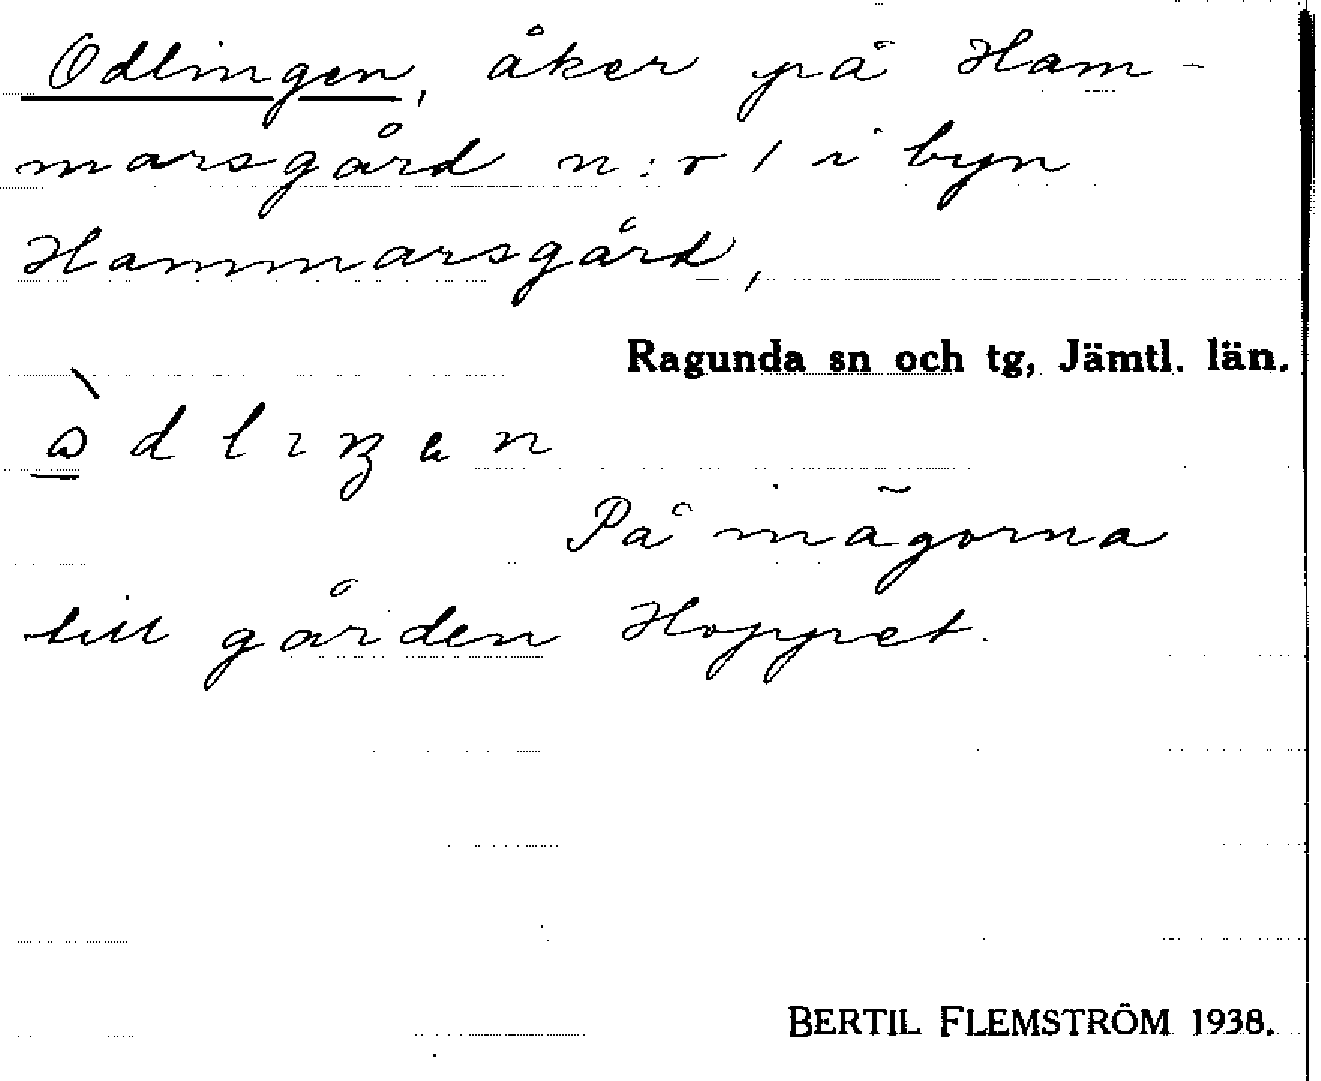 Odlingen, åker på Ham-
marsgård n:r 1 i byn
Hammarsgård,
Ragunda sn och tg, Jämtl. län.
På inägorna
till gården Hoppet.
BERTIL FLEMSTRÖM 1938.